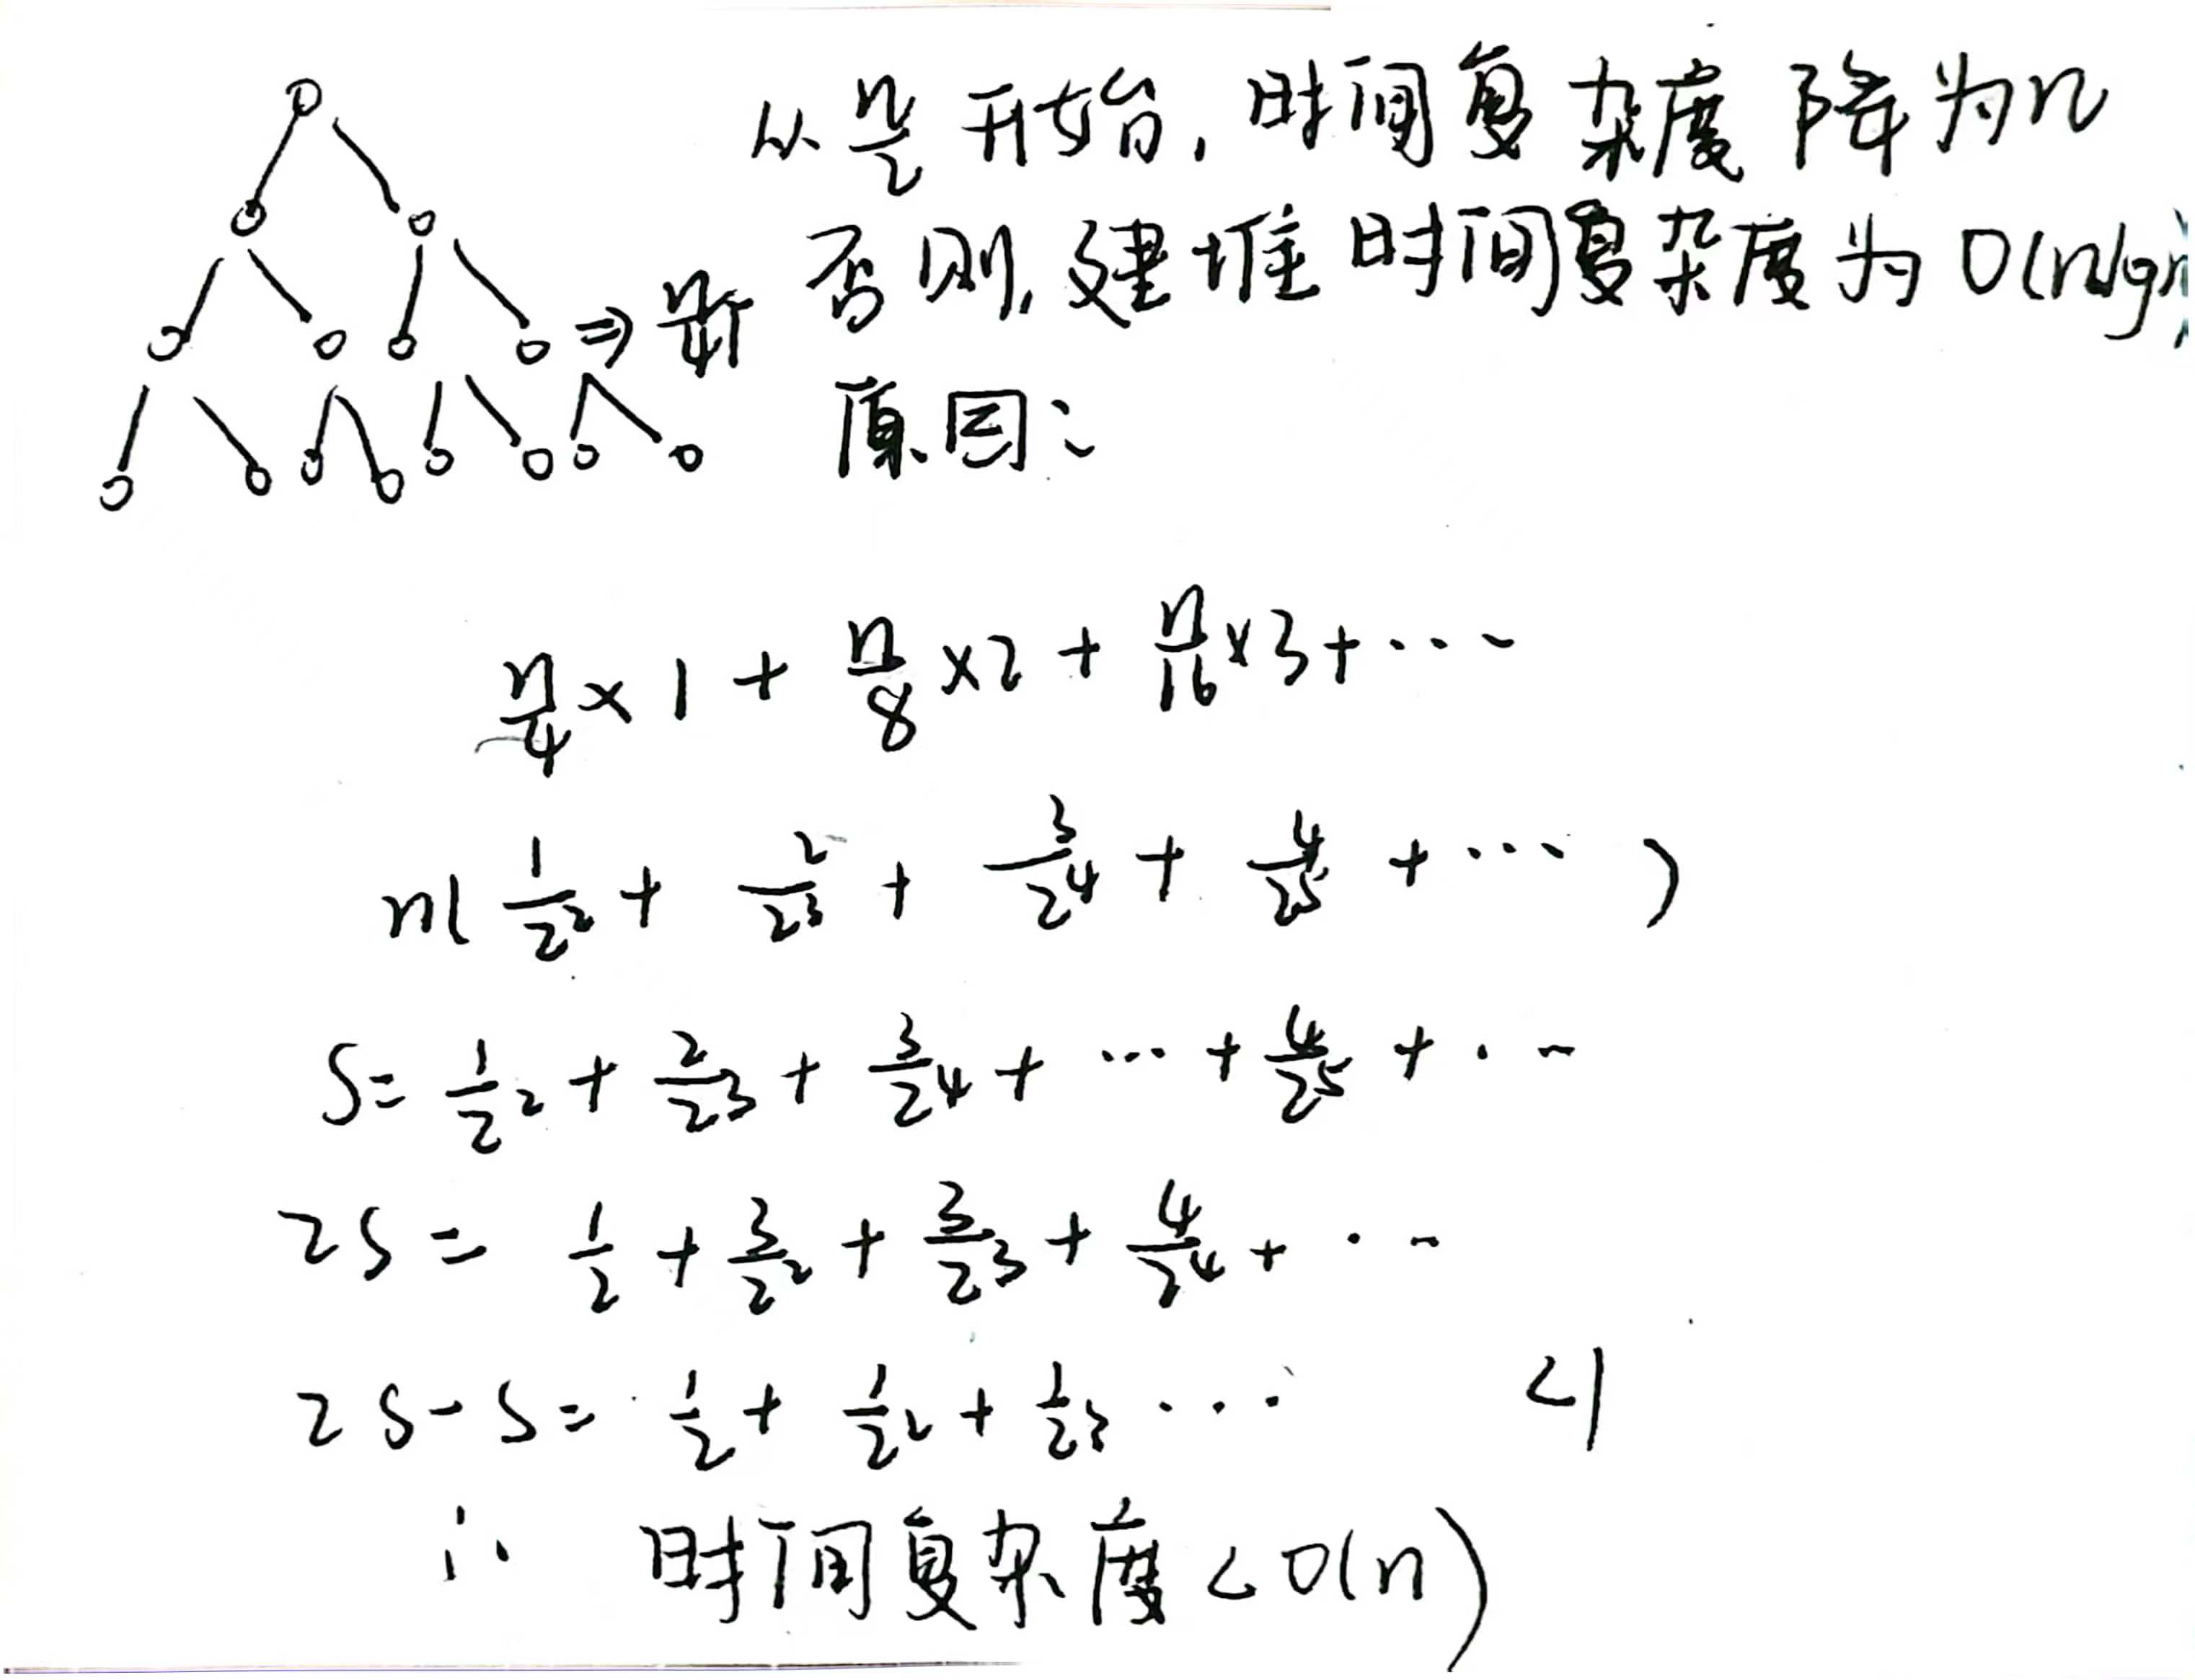 从n/2开始,时间复杂度降为n
否则,建堆时间复杂度为O(nlgn)
⇒n/4个
原因:
n/4×1+n/8×2+n/16×3+···
n(1/2²+2/2³+3/2⁴+4/2⁵+···)
S=1/2²+2/2³+3/2⁴+···+4/2⁵+···
2S=1/2+3/2²+3/2³+4/2⁴+···
2S-S=1/2+1/2²+1/2³··· <1
∴ 时间复杂度<O(n)